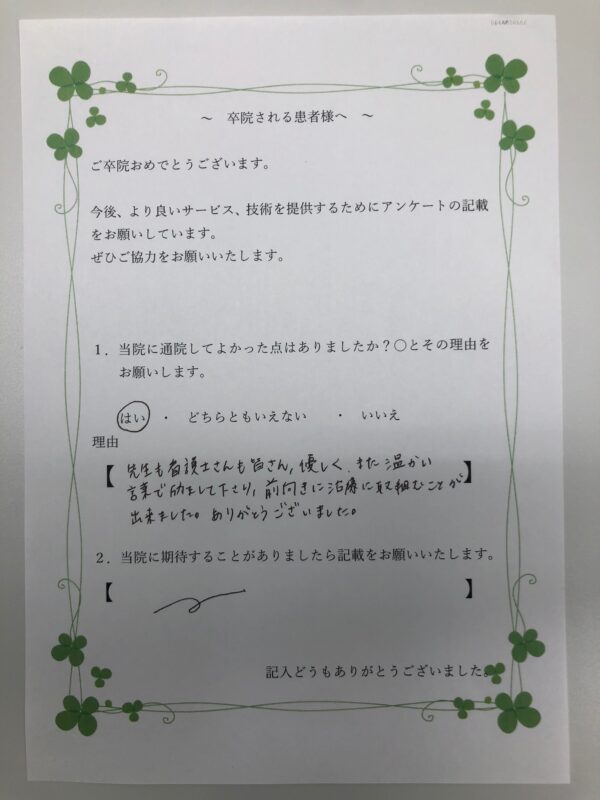 ～ 卒院される患者様へ ～
ご卒院おめでとうございます。
今後、より良いサービス、技術を提供するためにアンケートの記載
をお願いしています。
ぜひご協力をお願いいたします。
１．当院に通院してよかった点はありましたか？〇とその理由を
お願いします。
はい ・ どちらともいえない ・ いいえ
理由
【 先生も看護士さんも皆さん、優しく、また温かい
言葉で励まして下さり、前向きに治療に取り組むことが
出来ました。ありがとうございました。 】
２．当院に期待することがありましたら記載をお願いいたします。
【 】
記入どうもありがとうございました。